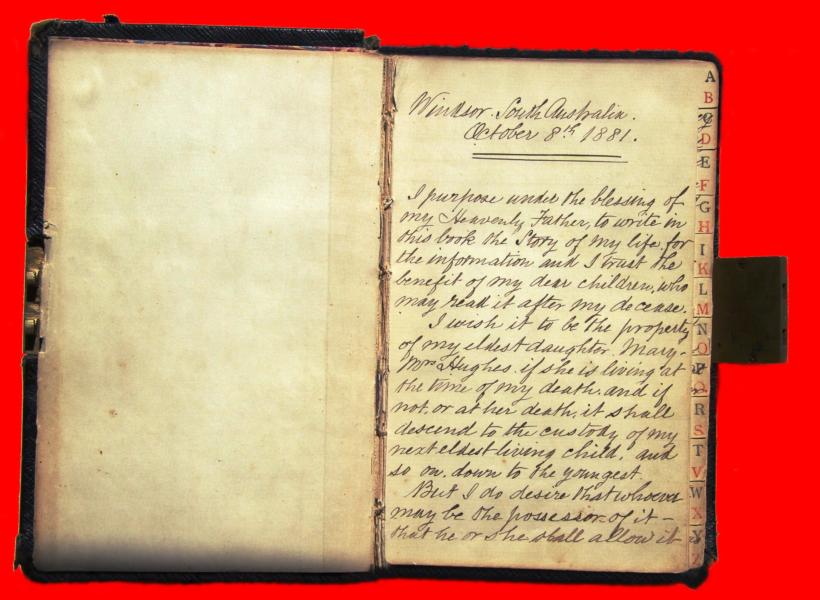 Windsor. South Australia.
October 8th 1881.
I purpose under the blessing of
my Heavenly Father, to write in
this book the Story of my life, for
the information and I trust the
benefit of my dear children, who
may read it after my decease.
I wish it to be the property
of my eldest daughter Mary-
Mrs Hughes. if she is living at
the time of my death. and if
not. or at her death. it shall
descend to the custody of my
next eldest living child. and
so on. down to the youngest.
But I do desire that whoever
may be the possessor of it -
that he or she shall allow it
A
B
C
D
E
F
G
H
I
K
L
M
N
O
P
Q
R
S
T
V
W
X
Y
Z